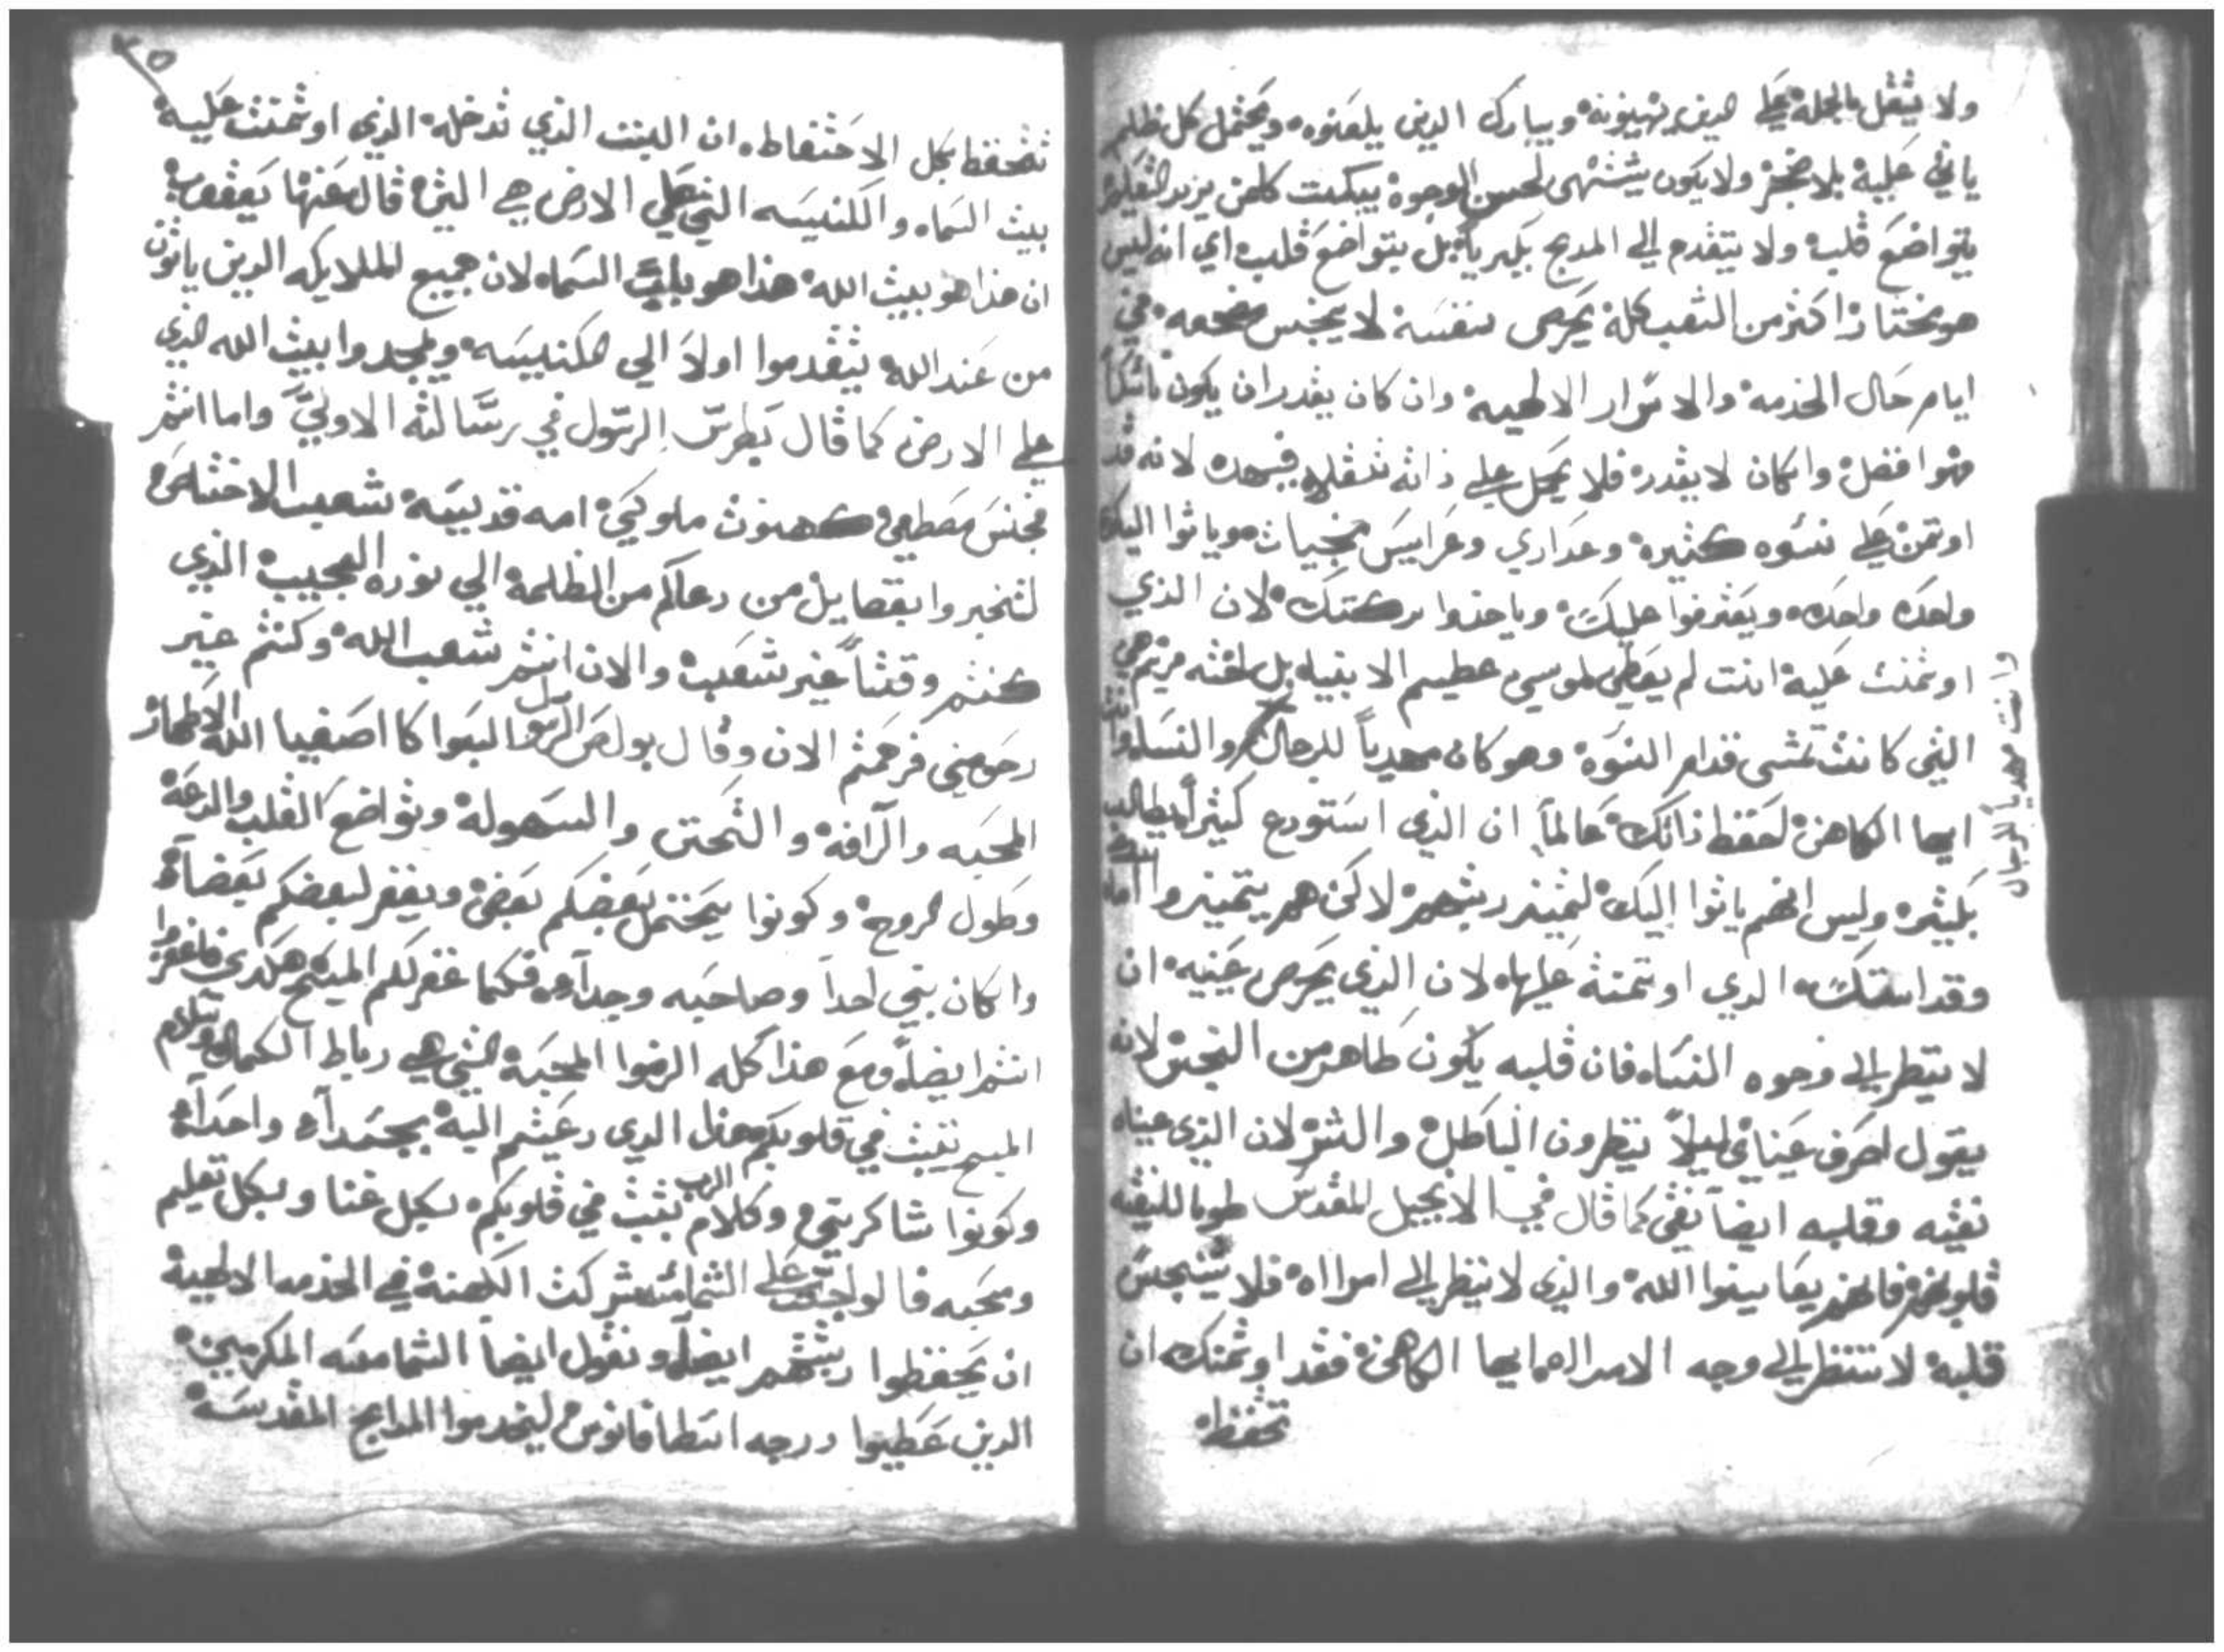 ولا يثقل بالجملة علي الدين يهينونه ويبارك الدين يلعنوه ويحتمل كل ظلم
ياتي عليه بلا ضجر ولا يكون يشتهي لحسن الوجوه يبكت كلمن يريد التعليم
يتواضع قلبه ولا يتقدم الي المدبح بكبرياء بل يتواضع قلب اي انه ليس
هو مختار اكثر من الشعب كله يحرص نفسه لا ينجس مضجعه في
ايام حال الخدمه والاسرار الالهيه وان كان يقدر ان يكون ناسكا
فهوا افضل وان كان لا يقدر فلا يحمل علي ذاته ثقلا جسده لانه قد
اوتمن علي نسوه كثيره وعداري وعرايس مخبيات وياتوا اليك
واحده واحده ويعترفوا عليك وياخذوا بركتك لان الذي
اوتمنت عليه انت لم يعطي لموسي عظيم الانبياء بل اخته مريم هي
التي كانت تمشي قدام النسوه وهو كان مهديا للرجال والنساء وانت
وانت مهديا للرجال
ايها الكاهن احفظ ذاتك عالما ان الذي استودع كثيرا يطالب
بكثيره وليس انهم ياتوا اليك لتميز ربتهم لاكن هم يتميزوا
وقداستك الدي اوتمنة عليها لان الذي يحرص عينيه ان
لا ينظر الي وجوه النساء فان قلبه يكون طاهر من النجس لانه
يقول اصرف عيناي ليلا ينظرون الباطل والشر لان الذي عيناه
نقيه وقلبه ايضا نقي كما قال في الانجيل المقدس طوبا للنقيه
قلوبهم فانهم يعاينوا الله والذي لا ينظر الي امراه فلا يتنجس
قلبه لا تنظر الي وجه الامراه ايها الكاهن فقد اوتمنك ان
تحفظ
٣٥
تتحفظ بكل الاحتفاظ ان البيت الذي تدخله الذي اوتمنت عليه
بيت السماء والكنيسه التي علي الارض هي التي قال عنها يعقوب
ان هذا هو بيت الله هذا هو باب السماء لان جميع الملايكه الدين ياتون
من عند الله يتقدموا اولا الي الكنيسه ويمجدوا بيت الله الذي
علي الارض كما قال بطرس الرسول في رسالته الاولي واما انتم
فجنس مصطفي كهنوت ملوكي امه قديسه شعب الاختاص
لتخبروا بفضايل من دعاكم من الظلمه الي نوره العجيب الذي
كنتم وقتا غير شعب والان انتم شعب الله وكنتم غير
مرحومين فرحمتم الان وقال بولص الرسول البسوا كاصفيا الله الاطهار
المحبه والرافه والتحنن والسهوله وتواضع القلب والدعه
وطول الروح وكونوا يحتمل بعضكم بعض ويغفر لبعضكم بعضا
وان كان بين احدا وصاحبه وجدا فكما غفر لكم المسيح هكدي فاغفروا
انتم ايضا ومع هذا كله الزموا المحبه التي هي رباط الكمال وسلام
المسيح يثبت في قلوبكم هدا الدي دعيتم اليه بجسدا واحدا
وكونوا شاكرين وكلام الرب يثبت في قلوبكم بكل غنا وبكل تعليم
ومحبه فالواجب علي الشمامسه شركت الكهنه في الخدمه الالهيه
ان يحفظوا ربتهم ايضا ونقول ايضا الشمامسه المكرمين
الدين عطيوا درجه اسطافانوس ليخدموا المدابح المقدسه